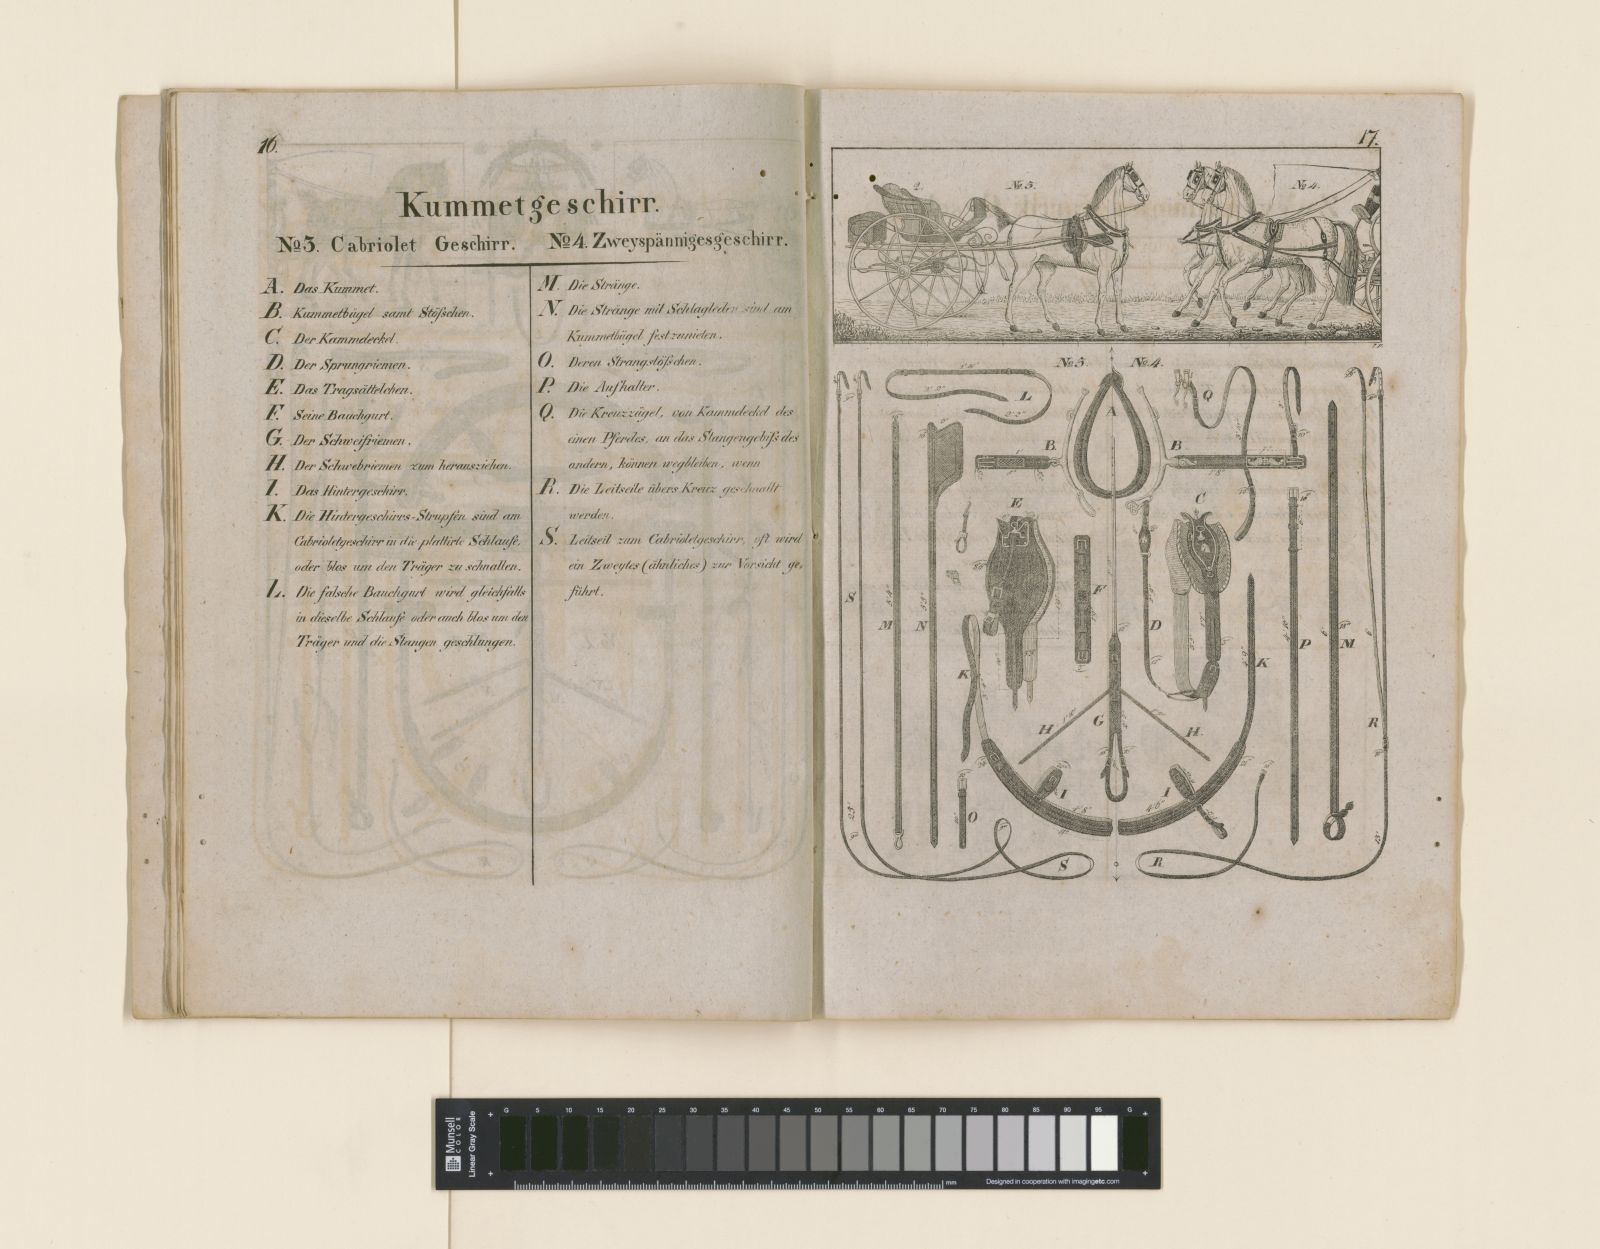 16.
Kummetgeschirr.
No 3. Cabriolet Geschirr. No 4. Zweyspännigesgeschirr.
A. Das Kummet.
B. Kummetbügel samt Stößchen.
C. Der Kammdeckel.
D. Der Sprungriemen.
E. Das Tragsättelchen.
F. Seine Bauchgurt.
G. Der Schweifriemen.
H. Der Schwebriemen zum herausziehen.
I. Das Hintergeschirr.
K. Die Hintergeschirrs-Strupfen sind am
Cabrioletgeschirr in die plattirte Schlaufe,
oder blos um den Träger zu schnallen.
L. Die falsche Bauchgurt wird gleichfalls
in dieselbe Schlaufe oder auch blos um den
Träger und die Stangen geschlungen.
M. Die Stränge.
N. Die Stränge mit Schlagleder sind am
Kummetbügel festzunieten.
O. Deren Strangstößchen.
P. Die Aufhalter.
Q. Die Kreuzzügel, von Kammdeckel des
einen Pferdes, an das Stangengebiß des
andern, können wegbleiben, wenn
R. Die Leitseile übers Kreuz geschnallt
werden.
S. Leitseil zum Cabrioletgeschirr, oft wird
ein Zweytes (ähnliches) zur Vorsicht ge,
führt.
17.
2. No 3. No 4.
No 3. No 4.
L A Q
B. B
E C
S M N F D K K P M R
H G H.
I I
O
S R
Munsell
COLOR
Linear Gray Scale
G 5 10 15 20 25 30 35 40 45 50 55 60 65 70 75 80 85 90 95 G
mm
Designed in cooperation with imagingetc.com